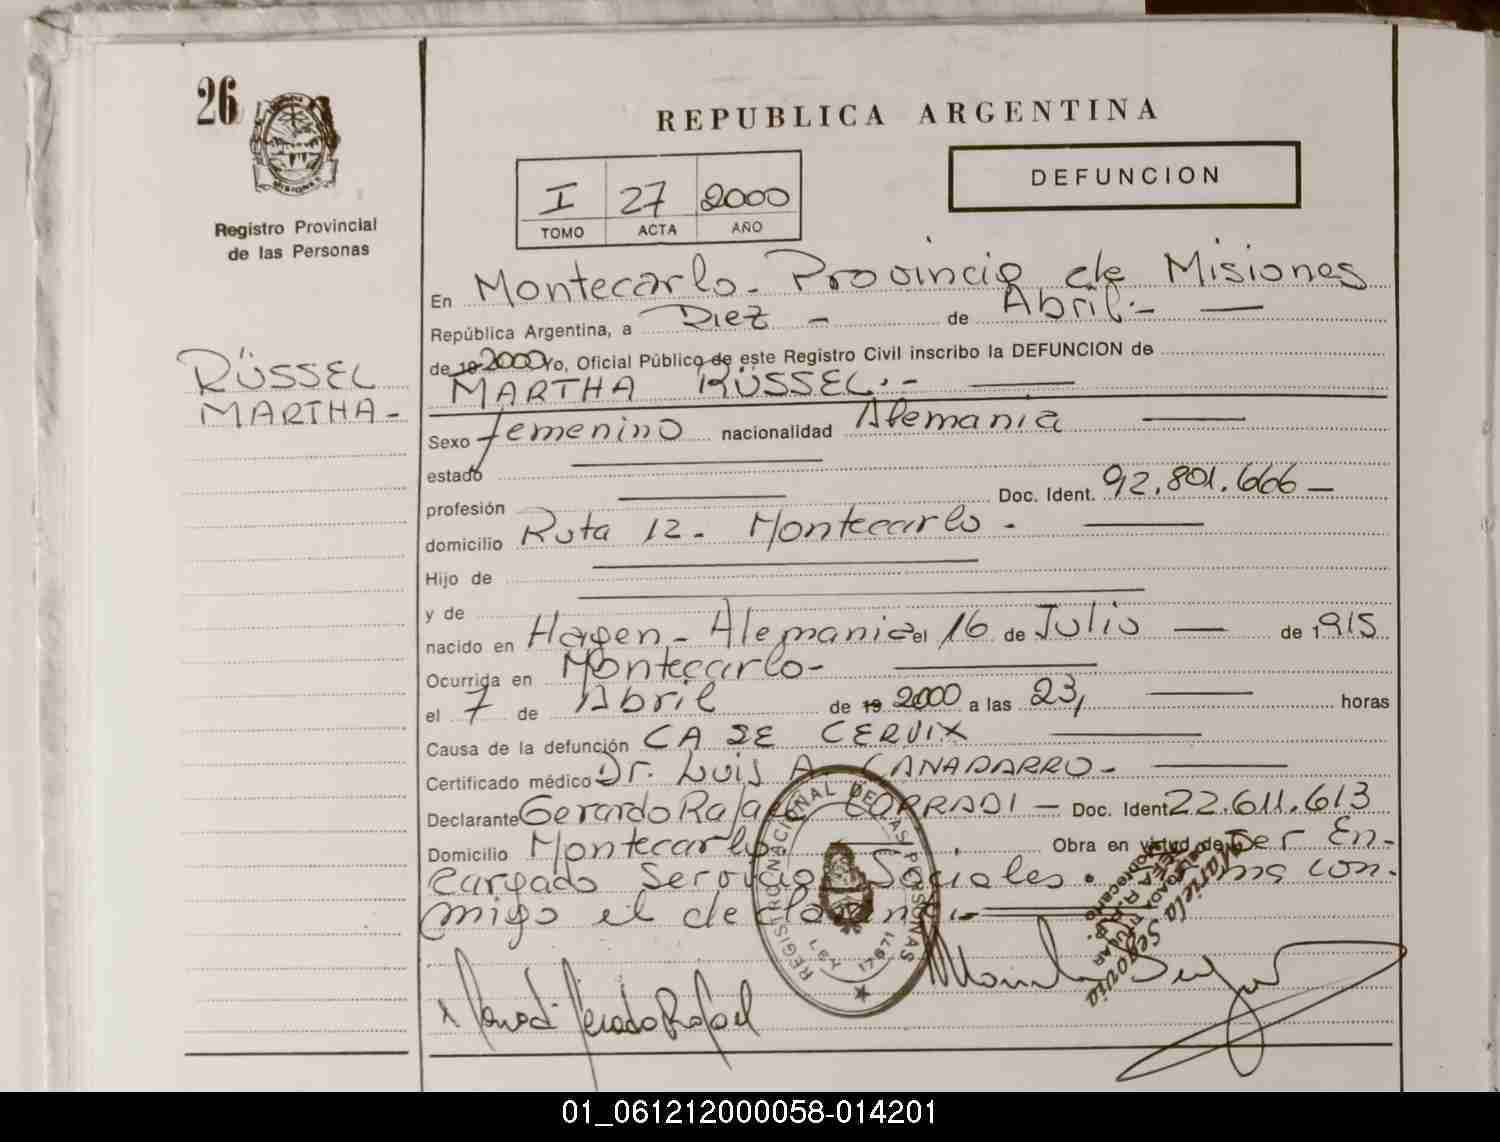 26
MISIONES
Registro Provincial
de las Personas
RÜSSEL
MARTHA-
REPUBLICA ARGENTINA
I 27 2000
TOMO ACTA AÑO
DEFUNCION
En Montecarlo- Provincia de Misiones
República Argentina, a Diez - de Abril.-
de 19 2000 Yo, Oficial Público de este Registro Civil inscribo la DEFUNCION de
MARTHA RÜSSEL.-
Sexo femenino nacionalidad Alemania
estado
profesión Doc. Ident. 92.801.666-
domicilio Ruta 12- Montecarlo-
Hijo de
y de
nacido en Hagen- Alemania el 16 de Julio de 1915
Ocurrida en Montecarlo-
el 7 de Abril de 19 2000 a las 23, horas
Causa de la defunción CA DE CERVIX
Certificado médico Dr. Luis A. CANADARRO-
Declarante Gerardo Rafael CORRADI- Doc. Ident 22.611.613
Domicilio Montecarlo Obra en virtud de Ser En-
cargado Servicios Sociales. Firma con-
migo el declarante.-
REGISTRO NACIONAL DE LAS PERSONAS
LEY 17.671
Mariela Segovia
01_061212000058-014201